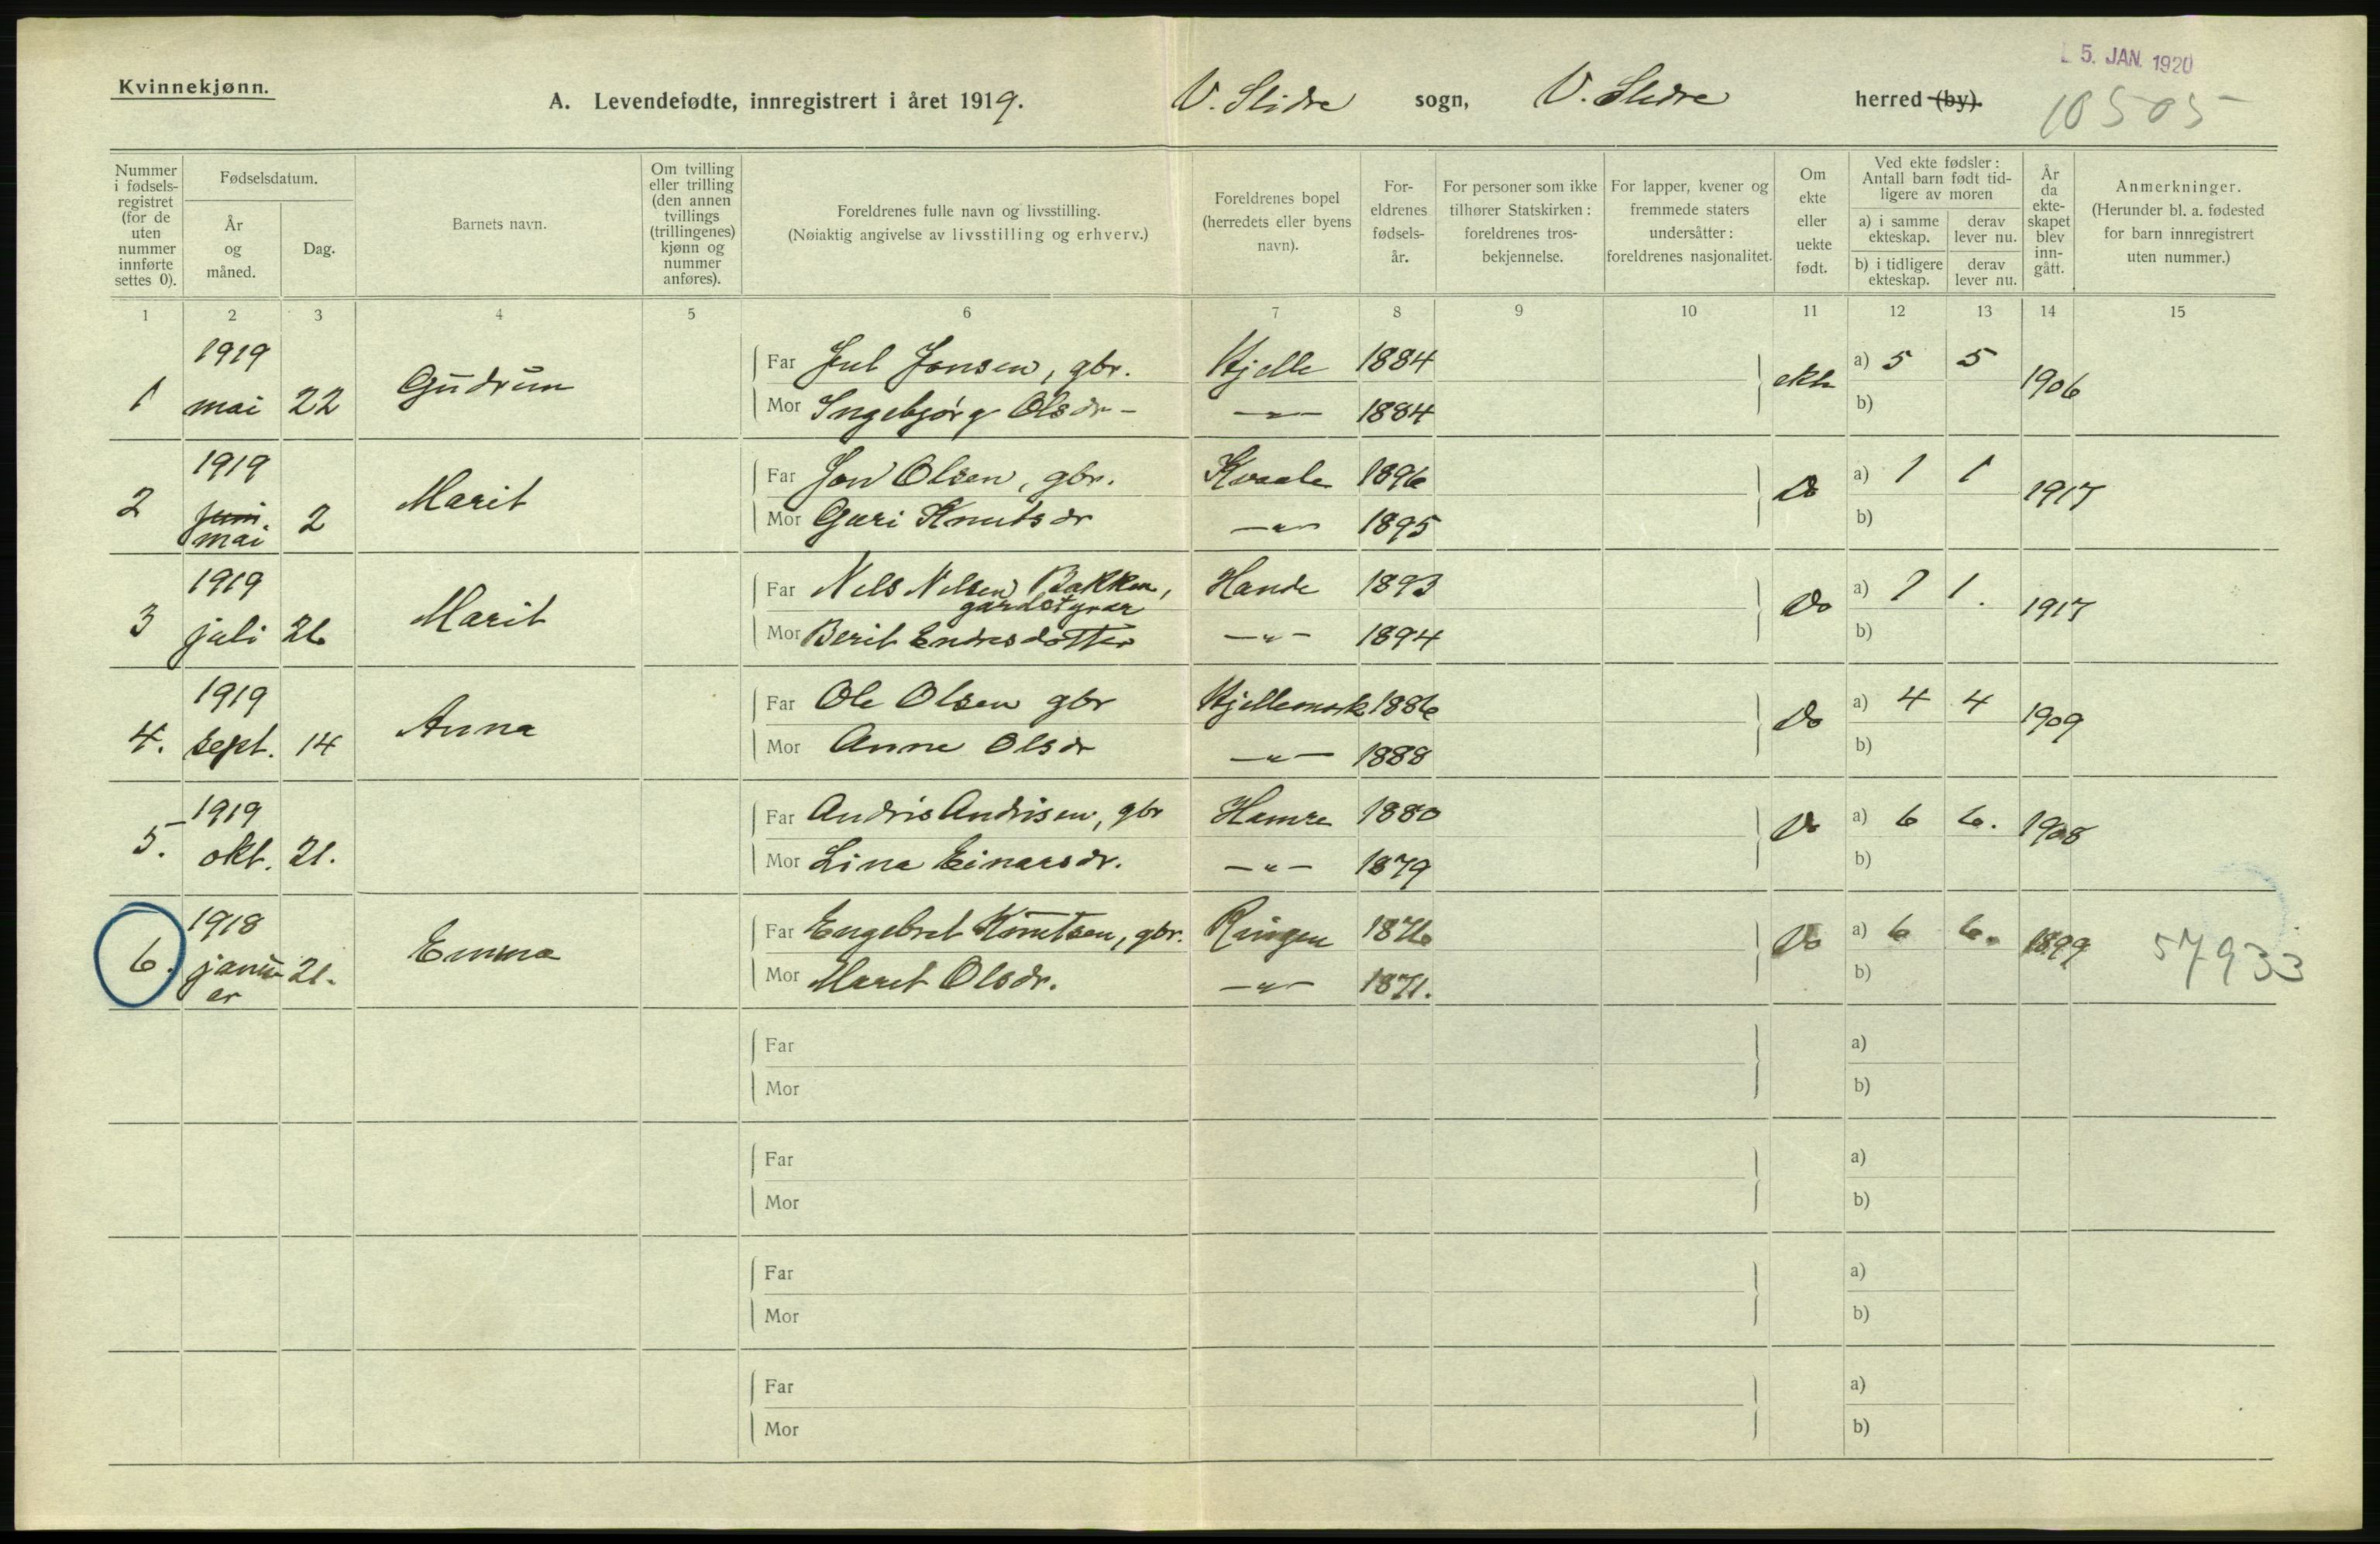 5. JAN. 1920
Kvinnekjønn.
A. Levendefødte, innregistrert i året 1919. V. Slidre sogn, V. Slidre herred (by).
10505
Nummer i fødsels- registret (for de uten nummer innførte settes 0).
Fødselsdatum.
År og måned.
Dag.
Barnets navn.
Om tvilling eller trilling (den annen tvillings (trillingenes) kjønn og nummer anføres).
Foreldrenes fulle navn og livsstilling.
(Nøiaktig angivelse av livsstilling og erhverv.)
Foreldrenes bopel (herredets eller byens navn).
For- eldrenes fødsels- år.
For personer som ikke tilhører Statskirken: foreldrenes tros- bekjennelse.
For lapper, kvener og fremmede staters undersåtter: foreldrenes nasjonalitet.
Om ekte eller uekte født.
Ved ekte fødsler: Antall barn født tid- ligere av moren
a) i samme ekteskap.
derav lever nu.
b) i tidligere ekteskap.
derav lever nu.
År da ekte- skapet blev inn- gått.
Anmerkninger.
(Herunder bl. a. fødested for barn innregistrert uten nummer.)
1 2 3 4 5 6 7 8 9 10 11 12 13 14 15
1 1919 mai 22 Gudrun
Far Jul Jonsen, gbr. Hjelle 1884 ekte a) 5 5 1906
Mor Ingebjørg Olsdr - —"— 1884 b)
2 1919 juni. mai 2 Marit
Far Jon Olsen, gbr. Kvaale 1896 Do a) 1 1 1917
Mor Guri Knutsdr —"— 1895 b)
3 1919 juli 26 Marit
Far Nels Nelsen Bakken, gardstyrar Hande 1893 Do a) 1 1. 1917
Mor Berit Endresdotter —"— 1894 b)
4. 1919 sept. 14 Anna
Far Ole Olsen gbr 1886 Do a) 4 4 1909
Mor Anne Olsdr —"— 1888 b)
5. 1919 okt. 21.
Far Andris Andrisen, gbr Hamre 1880 Do a) 6 6. 1908
Mor Lina Einarsdr. —"— 1879 b)
6. 1918 januar 21. Emma
Far Engebret Knutsen, gbr. Ringen 1876 Do a) 6 6. 1899 57933
Mor Marit Olsdr. —"— 1871. b)
Far a)
Mor b)
Far a)
Mor b)
Far a)
Mor b)
Far a)
Mor b)